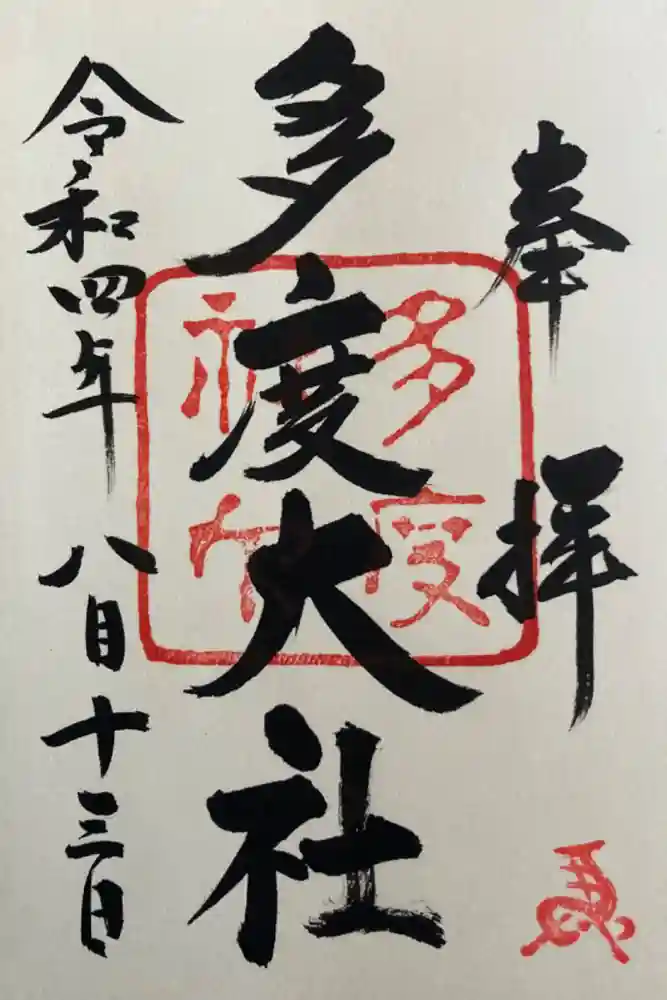 奉拝
多度大社
令和四年八月十三日
多度
神社